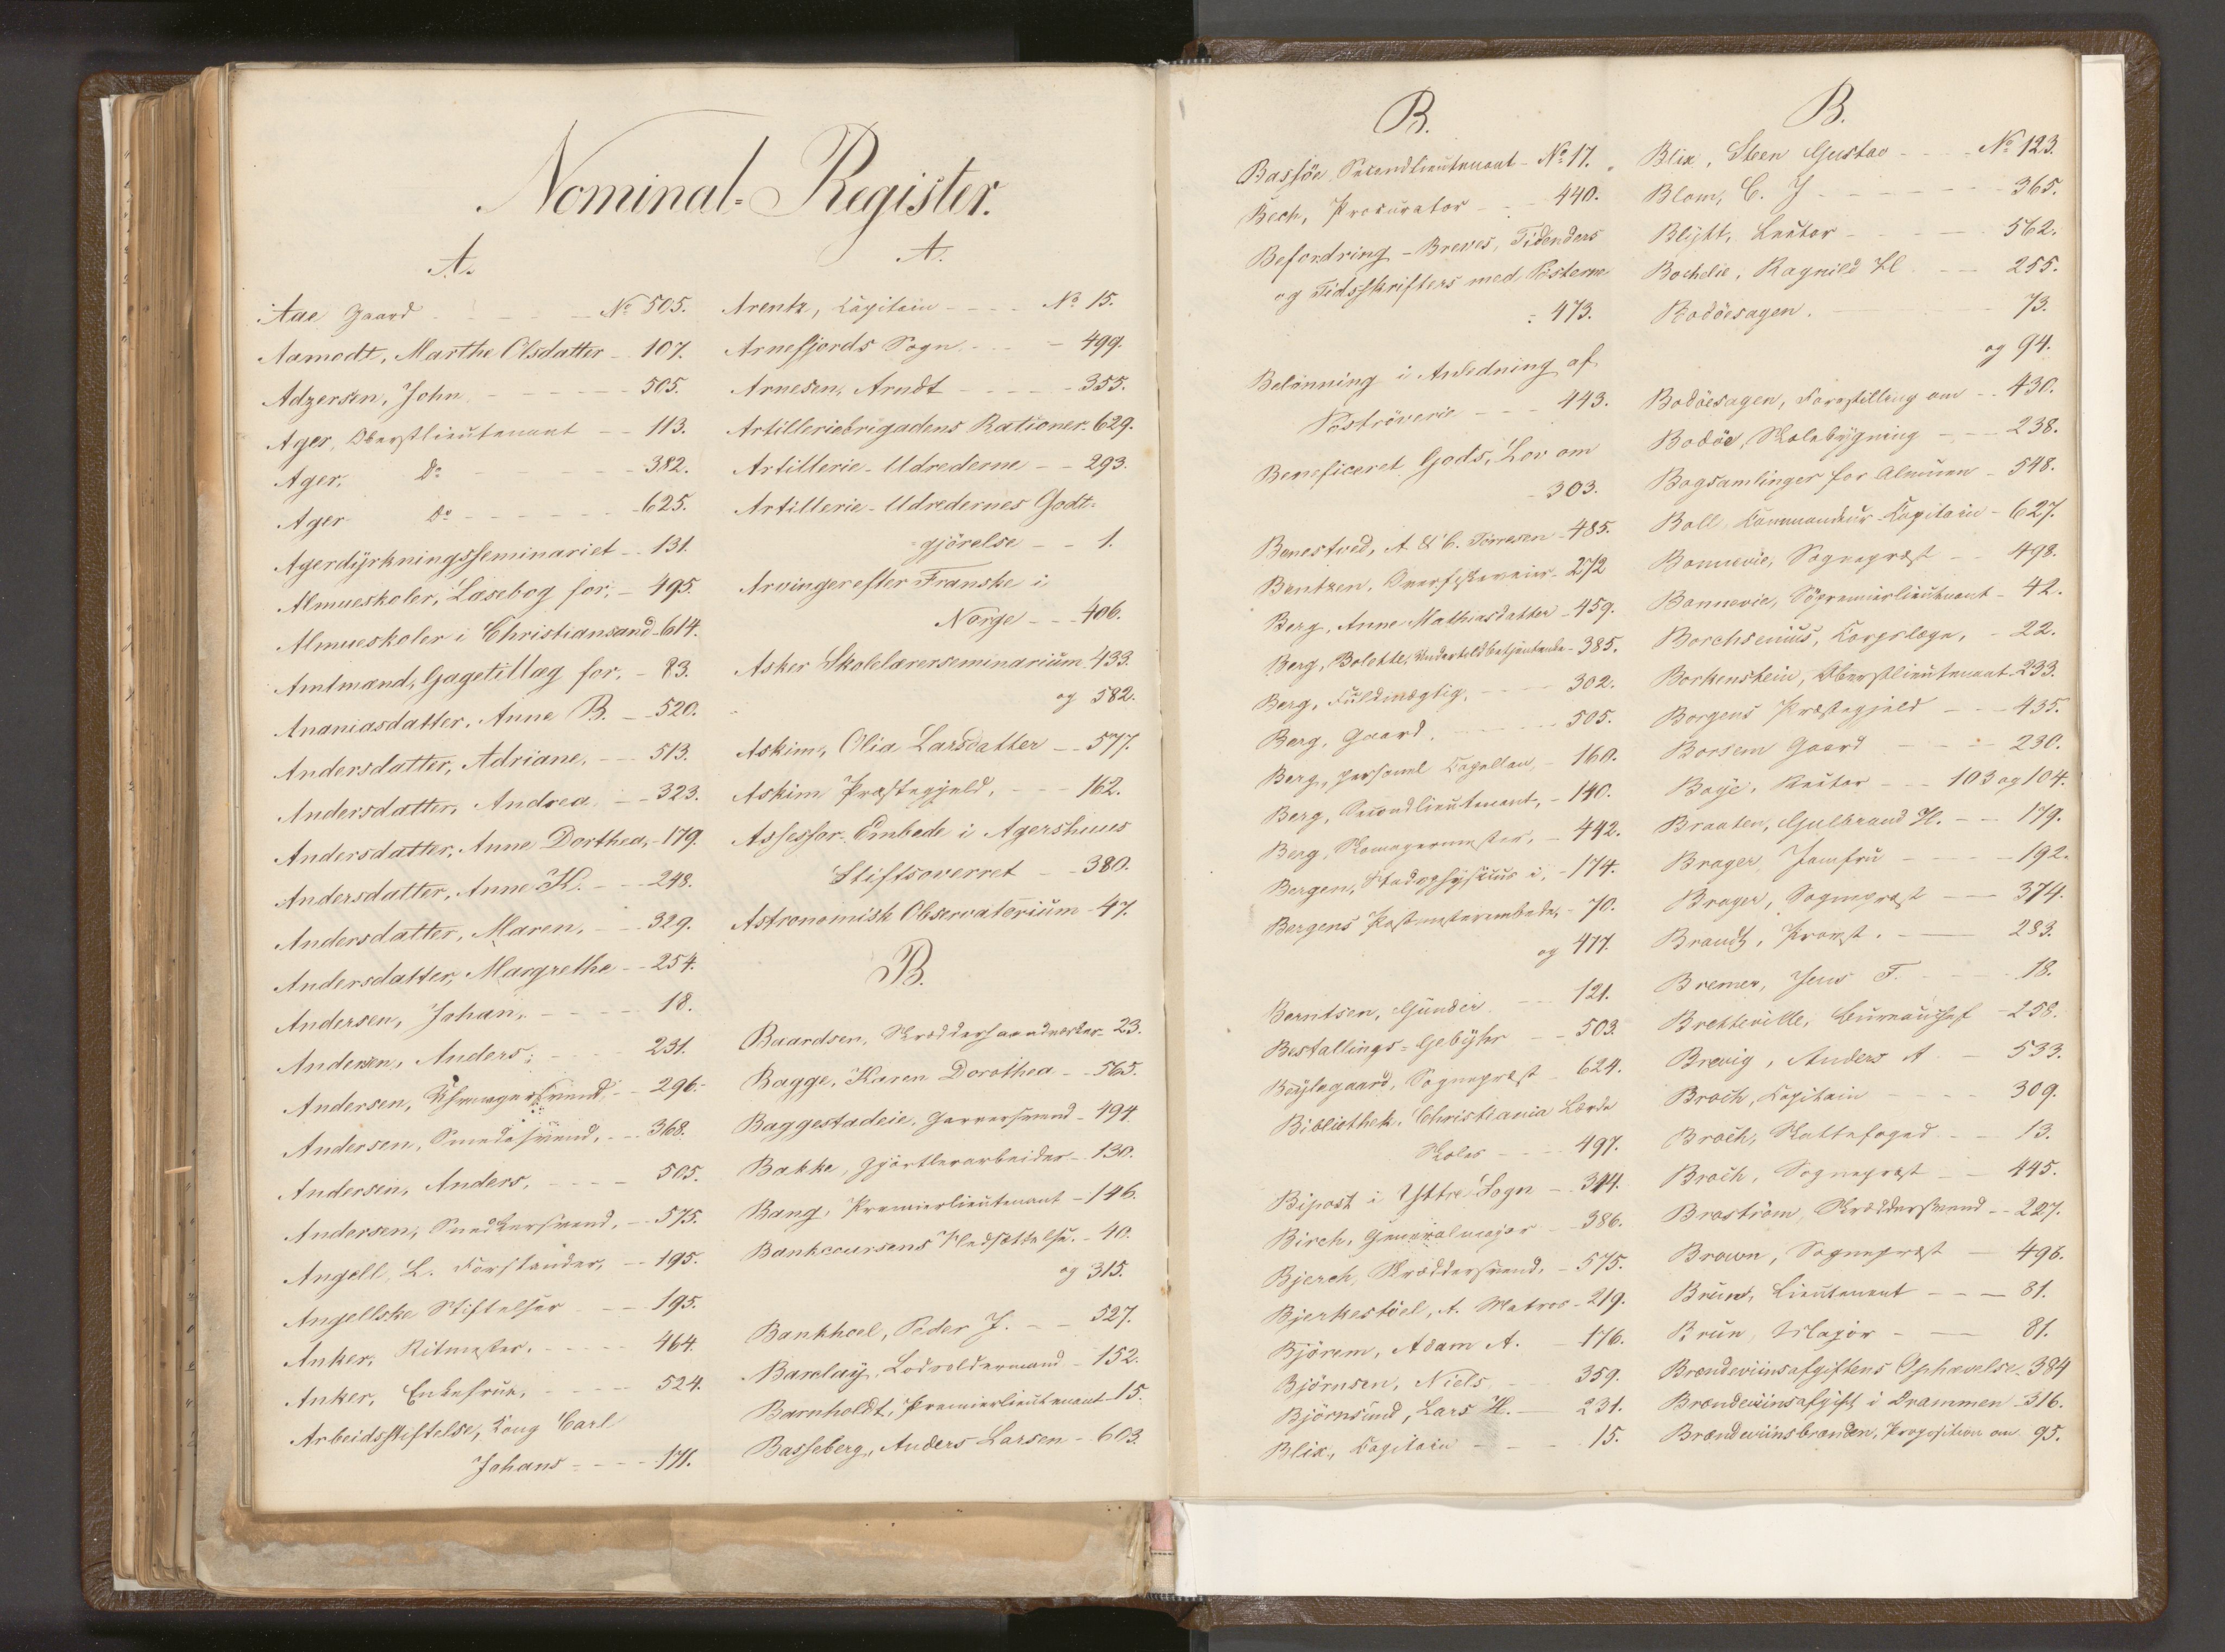 Nominal-Register.
A.
Aae Gaard No 505.
Aamodt, Marthe Olsdatter 107.
Adzersen, John 505.
Ager, Oberstlieutenant 113.
Ager, Do 382.
Ager Do 625.
Agerdyrkningsseminariet 131.
Almueskoler, Læsebog for, 495.
Almueskoler i Christiansand 614.
Amtmænd, Gagetillæg for, 83.
Ananiasdatter, Anne B. 520.
Andersdatter, Adriane, 513.
Andersdatter, Andrea 323.
Andersdatter, Anne Dorthea, 179.
Andersdatter, Anne K. 248.
Andersdatter, Maren, 329.
Andersdatter, Margrethe 254.
Andersen, Johan, 18.
Andersen, Anders, 231.
Andersen, 296.
Andersen, Smedesvend, 368.
Andersen, Anders, 505.
Andersen, Snedkersvend, 575.
Angell, L. Forstander, 195.
Angellske Stiftelser 195.
Anker, Ritmester, 464.
Anker, Enkefrue, 524.
Arbeidsstiftelse, Kong Carl
Johans 171.
A.
Arentz, Capitain No 15.
Arnefjords Sogn 499.
Arnesen, Arndt 355.
Artilleriebrigadens Rationer 629.
Artillerie-Udrederne 293.
Artillerie-Udredernes Godt=
=gjörelse 1.
Arvinger efter Franske i
Norge 406.
Asker Skolelærerseminarium 433.
og 582.
Askim, Olia Larsdatter 577.
Askim Præstegjeld, 162.
Assessor-Embede i Agershuus
Stiftsoverret 380.
Astronomisk Observatorium 47.
B.
Baardsen, 23.
Bagge, Karen Dorothea 565.
Baggestadeie, Garversvend 494.
Bakke, Gjörtlerarbeider 130.
Bang, Premierlieutenant 146.
Bankcoursens Nedsættelse 40.
og 315.
Bankhoel, Peder J. 527.
Barclay, Lodsoldermand 152.
Barnholdt, Premierlieutenant 15.
Basseberg, Anders Larsen 603.
B.
Bassöe Secondlieutenant No 17.
Bech, Procurator 440.
Befordring - Breves, Tidenders
og Tidsskrifters med Posterne
473.
Belönning i Anledning af
Poströverie 443.
Beneficeret Gods, Lov om
303.
Benestved, A. & C. Törresen 485.
Bentzen, 272
Berg, Anne Mathiasdatter 459.
Berg, Bolette, Undertoldbetjentenke 385.
Berg, Fuldmægtig, 302.
Berg, Gaard, 505.
Berg, personel Capellan, 160.
Berg, Secondlieutenant, 140.
Berg, Skomagermester, 442.
Bergen, Stadsphysicus i, 174.
Bergens Postmesterembede, 70.
og 477.
Berntsen, Gunder 121.
Bestallings-Gebyhr 503.
Beylegaard, Sognepræst 624.
Bibliothek, Christiania Lærde
Skoles 497.
Bipost i Yttre Sogn 344.
Birch, Generalmajor 386.
Bjerch, Skræddersvend, 575.
Bjerkestöel, A. Matros 219.
Björem, Adam A. 176.
Björnsen, Niels 359.
Björnsund, Lars H. 231.
Blix, Capitain 15.
B.
Blix, Steen Gustav No 123.
Blom, C. J. 365.
Blytt, Lector 562.
Bochelie, Ragnild 255.
Bodöesagen. 73.
og 94.
Bodöesagen, Forestilling om 430.
Bodöe, Skolebygning 238.
Bogsamlinger for Almuen 548.
Boll, Commandeur-Capitain 627.
Bonnevie, Sognepræst 498.
Bonnevie, Söpremierlieutenant 42.
Borchsenius, Corpslæge, 22.
Borkenstein, Oberstlieutenant 233.
Borgens Præstegjeld 435.
Borsem Gaard 230.
Boye, Rector 103 og 104.
Braaten, Gulbrand H. 179.
Brager, Jomfru 192.
Brager, Sognepræst 374.
Brandt, Provst. 283.
Bremer, Jens F. 18.
Bretteville, Bureauchef 258.
Brevig, Anders A. 533.
Broch, Capitain 309.
Broch, Skattefoged 13.
Broch, Sognepræst 445.
Broström, Skræddersvend 227.
Brown, Sognepræst 498.
Bruns, Lieutenant 81.
Brun, Major 81.
Brændeviinsafgiftens Ophævelse 384
Brændeviinsafgift i Drammen 316.
Brændeviinsbrænden, Proposition om 95.